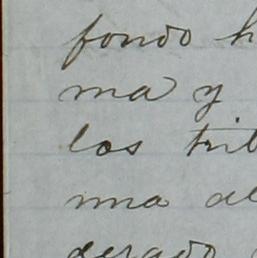 fondo h
ma y
los trib
una al